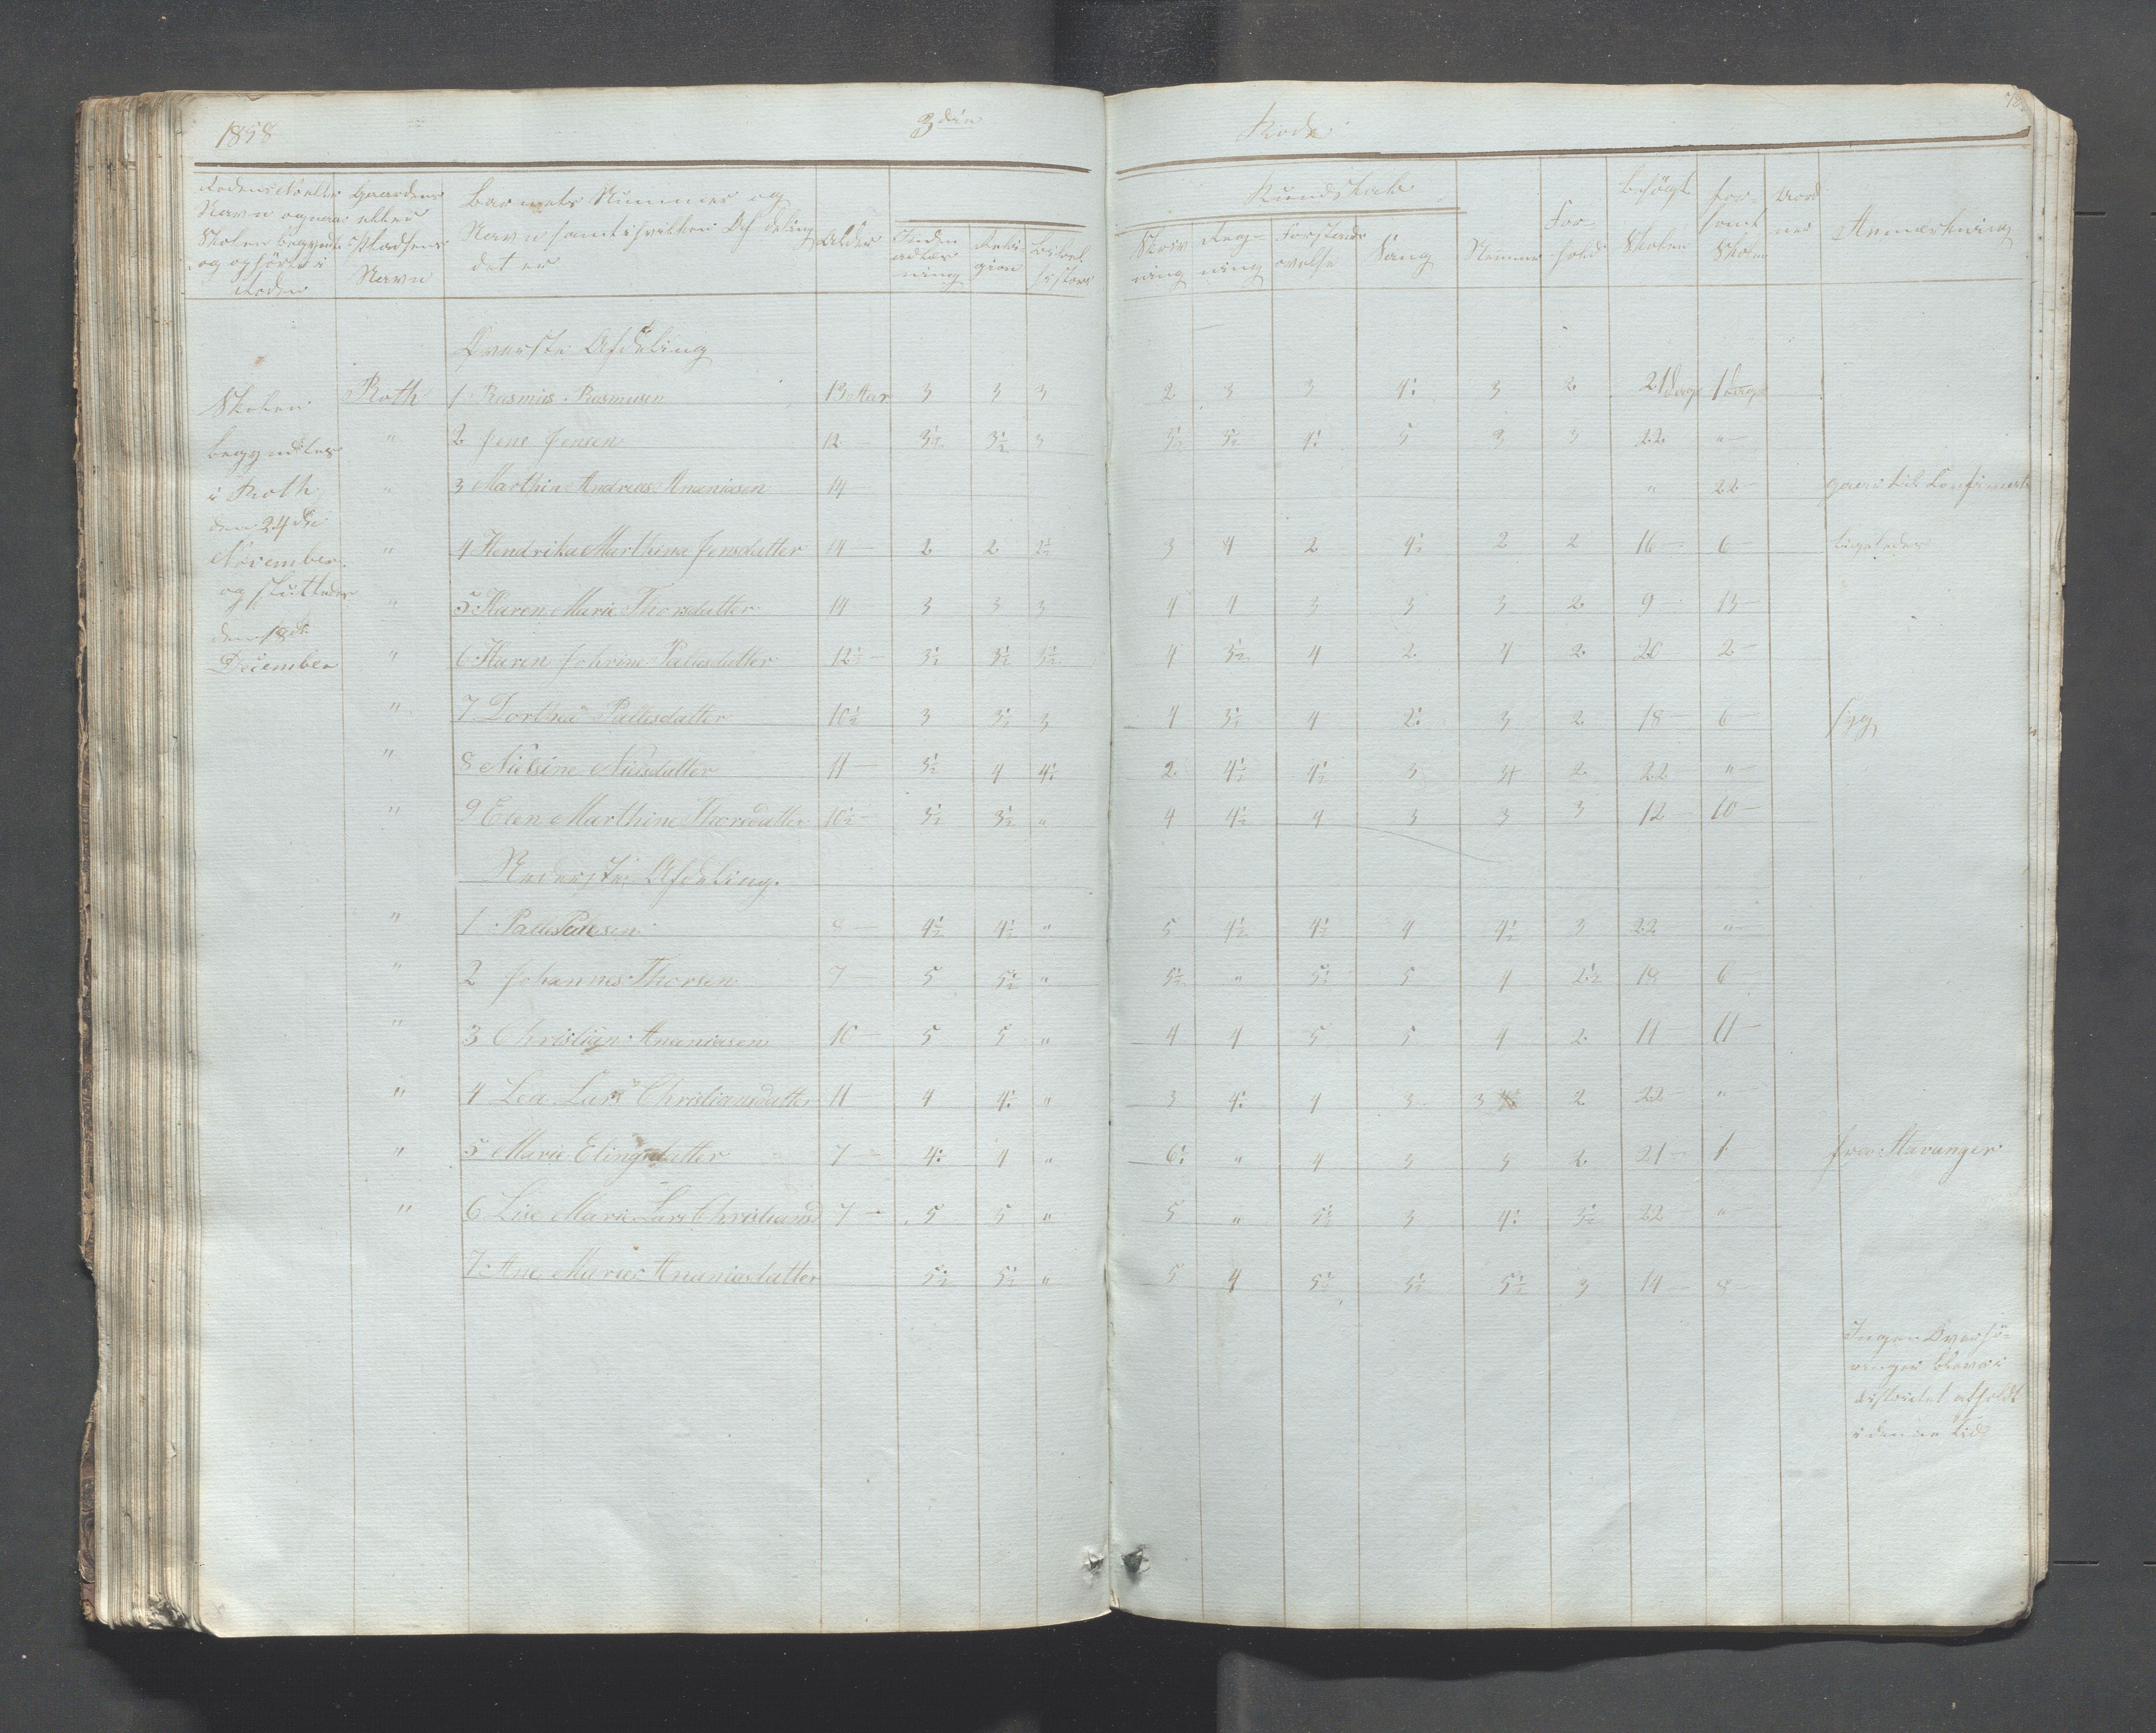 1858 3die Rode
Rodens Stelle Navn og naar Skolen begyndte og ophørte i Roden | Gaardens eller Pladsens Navn | Barnets Nummer og Navn samt i hvilken Afdeling det er | Alder | Inden adlæsning | Religion | Bibel historie | Kundskab | Skrivning | Regning | Forstands øvelse | Sang | Nemme | Forhold | Besøgt Skolen | forsømt Skolen | Anmærkning
Øverste Afdeling
Skolen begyndtes i Roth den 24de November og sluttedes den 18de December
Roth 1 Rasmus Rasmusen 13 Aar 3 3 3 2 3 3 4½ 3 2 21 dage 1 dag
" 2 Jens Jensen 12 — 3½ 3½ 3 3½ 3½ 4½ 5 3 3 22 "
" 3 Marthin Andreas Ananiasen 14 — " 22 —
" 4 Hendrika Marthina Jensdatter 14 — 2 2 2½ 3 4 2 4½ 2 2 16 — 6 — Ligeledes
" 5 Karen Marie Thorsdatter 14 — 3 3 3 4 4 3 3 3 2 9 — 13 —
" 6 Karen Johrine Pallesdatter 12½ — 3½ 3½ 3½ 4 3½ 4 2 4 2 20 2 —
" 7 Dorthea Pallesdatter 10½ 3 3½ 3 4 3½ 4 2½ 3 2 18 — 6 — syg
" 8 Nielsine Nielsdatter 11 — 3½ 4 4½ 2 4½ 4½ 3 2 22 " —
" 9 Elen Marthine Thorsdatter 10½ — 3½ 3½ " 4 4½ 4 3 3 3 12 10 —
Nederste Afdeling.
" 1 Palle Pallesen 8 — 4½ 4½ " 5 4½ 4½ 4 4½ 3 22 " —
" 2 Johannes Thorsen 7 — 5 5½ " 5½ " 5½ 5 4 6
" 3 Christian Ananiasen 10 — 5 5 " 4 4 5 5 4 2 11 — 11 —
" 4 Lea Lars Christiansdatter 11 — 4 4½ " 3 4½ 4 3 3 2 22 — "
" 5 Marie Elingsdatter 7 — 4½ 4 " 6½ " 4 3 3 2 21 — 1 fra Stavanger
" 6 Lise Marie Lars Christiansd 7 — 5 5 " 5 " 5½ 3 4½ 22 — "
7 Ane Marie Ananiasdatter 5½ 5½ " 5 4 5½ 5½ 5½ 3 14 — 8 —
Ingen Overhø-
ringer bleve i
distriktet afholdt
i denne Tid